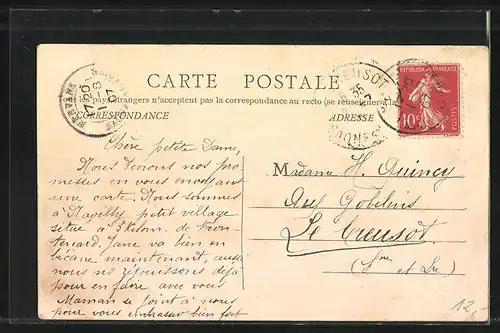 CARTE POSTALE
les pays étrangers n'acceptent pas la correspondance au recto (se renseigner
CORRESPONDANCE
ADRESSE
REPUBLIQUE FRANÇAISE
10c
POSTES
CREUSOT
Chère petite Dame,
Nous tenons nos pro
messes en vous envoyant
une carte. Nous sommes
à petit village
situé à 3 kilom. de
Jane va bien en
bécane maintenant, aussi
nous nous réjouissons déjà
pour en faire avec vous
Maman se joint à nous
pour vous embrasser bien fort
Madame H. Quincy
Aux Gobelins
Le Creusot
(Sne et Lre)
12,-